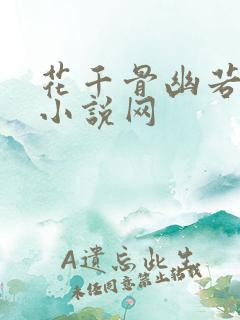 花千骨幽若
小说网
A遗忘此生
未经同意禁止转载